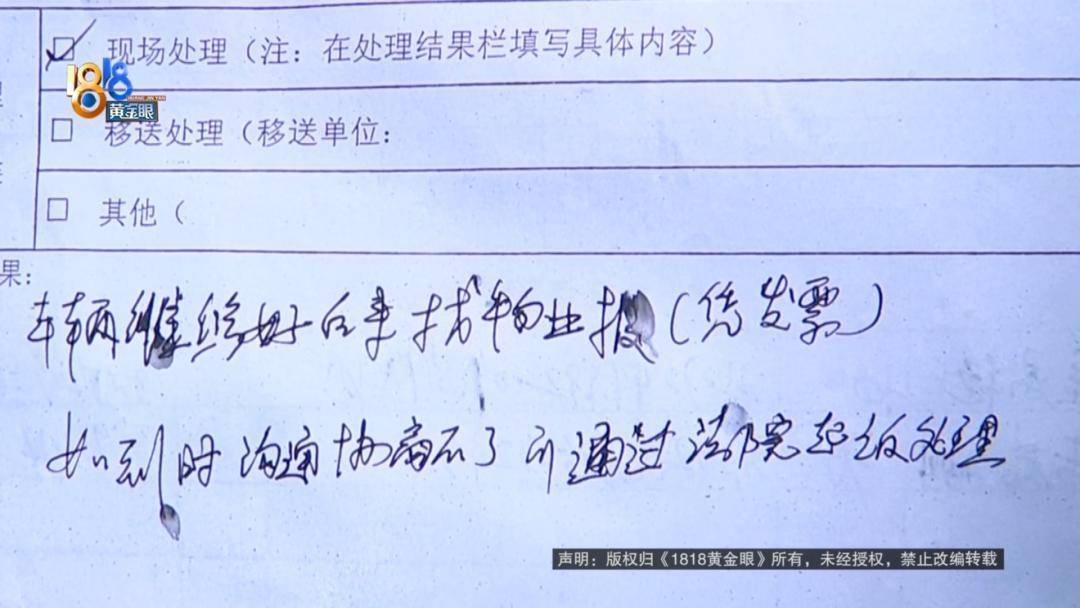 现场处理（注：在处理结果栏填写具体内容）
1818
黄金眼
移送处理（移送单位：
其他（
果：
车辆维修好后来找物业报（凭发票）
如到时沟通协商不了可通过法院起诉处理
声明：版权归《1818黄金眼》所有，未经授权，禁止改编转载